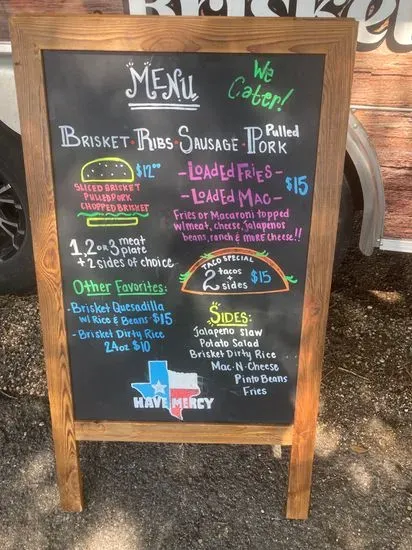 Brisket
MENU
We
Cater!
BRISKET · RIBS · SAUSAGE · Pulled PORK
$12.00
SLICED BRISKET
PULLED PORK
CHOPPED BRISKET
- LOADED FRIES -
- LOADED MAC -
$15
Fries or Macaroni topped
w/meat, cheese, jalapenos
beans, ranch & more cheese!!
1, 2 or 3 meat
plate
+ 2 sides of choice
TACO SPECIAL
2 tacos
+
sides
$15
Other Favorites:
- Brisket Quesadilla
w/ Rice & Beans $15
- Brisket Dirty Rice
24oz $10
SIDES:
Jalapeno Slaw
Potato Salad
Brisket Dirty Rice
Mac-N-Cheese
Pinto Beans
Fries
HAVE MERCY